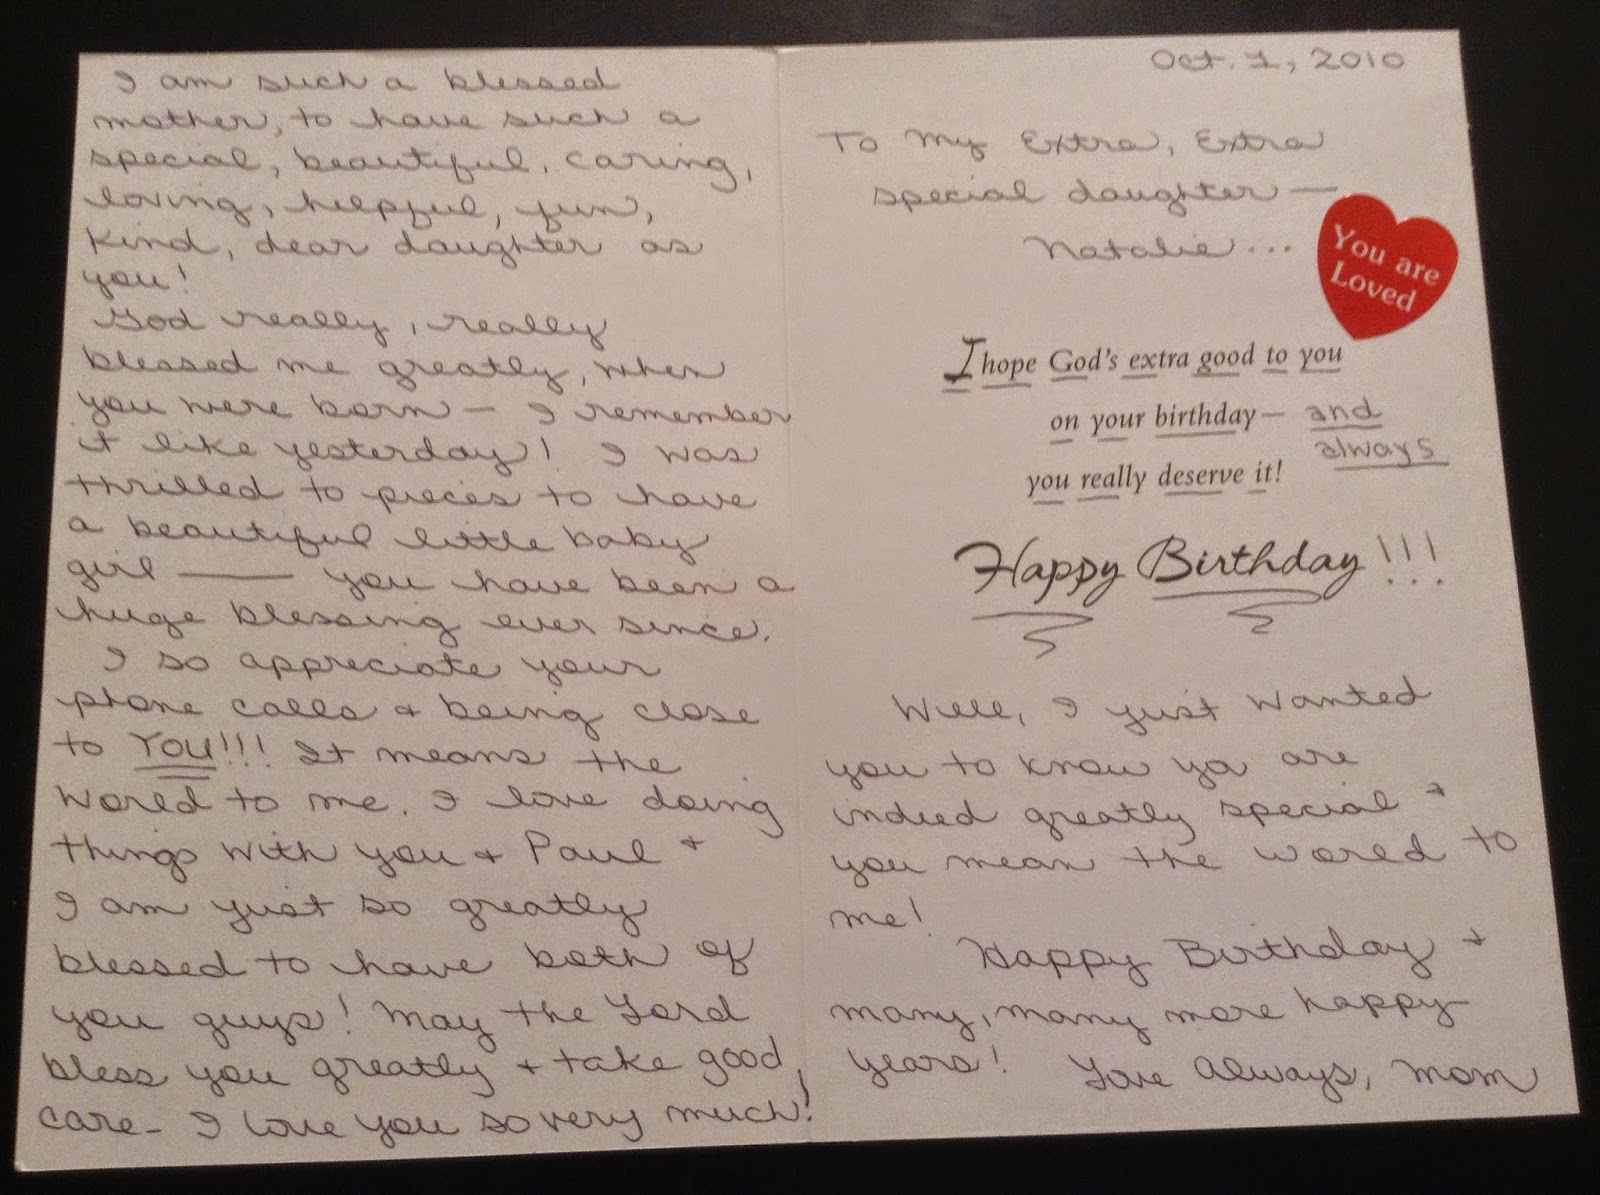 I am such a blessed
mother, to have such a
special, beautiful, caring,
loving, helpful, fun,
kind, dear daughter as
you!
God really, really
blessed me greatly, when
you were born — I remember
it like yesterday! I was
thrilled to pieces to have
a beautiful little baby
girl —— you have been a
huge blessing ever since.
I so appreciate your
phone calls & being close
to YOU!!! It means the
world to me. I love doing
things with you & Paul &
I am just so greatly
blessed to have both of
you guys! May the Lord
bless you greatly & take good
care - I love you so very much!
Oct. 1, 2010
To My Extra, Extra
special daughter —
Natalie...
You are
Loved
I hope God's extra good to you
on your birthday— and
always
you really deserve it!
Happy Birthday!!!
Well, I just wanted
you to know ya are
indeed greatly special &
you mean the world to
me!
Happy Birthday &
many, many more happy
years! Love Always, Mom